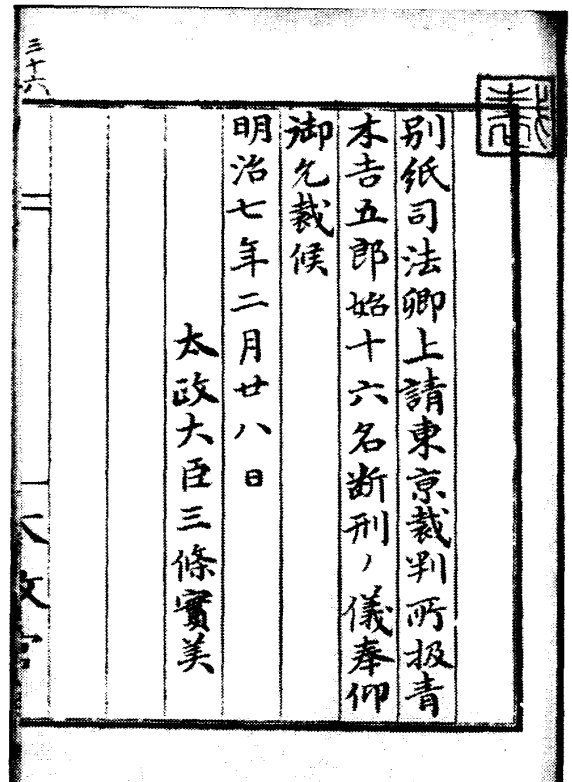 三十六
裁
別紙司法卿上請東京裁判所扱青
木吉五郎始十六名断刑ノ儀奉仰
御允裁候
明治七年二月廿八日
太政大臣三條實美